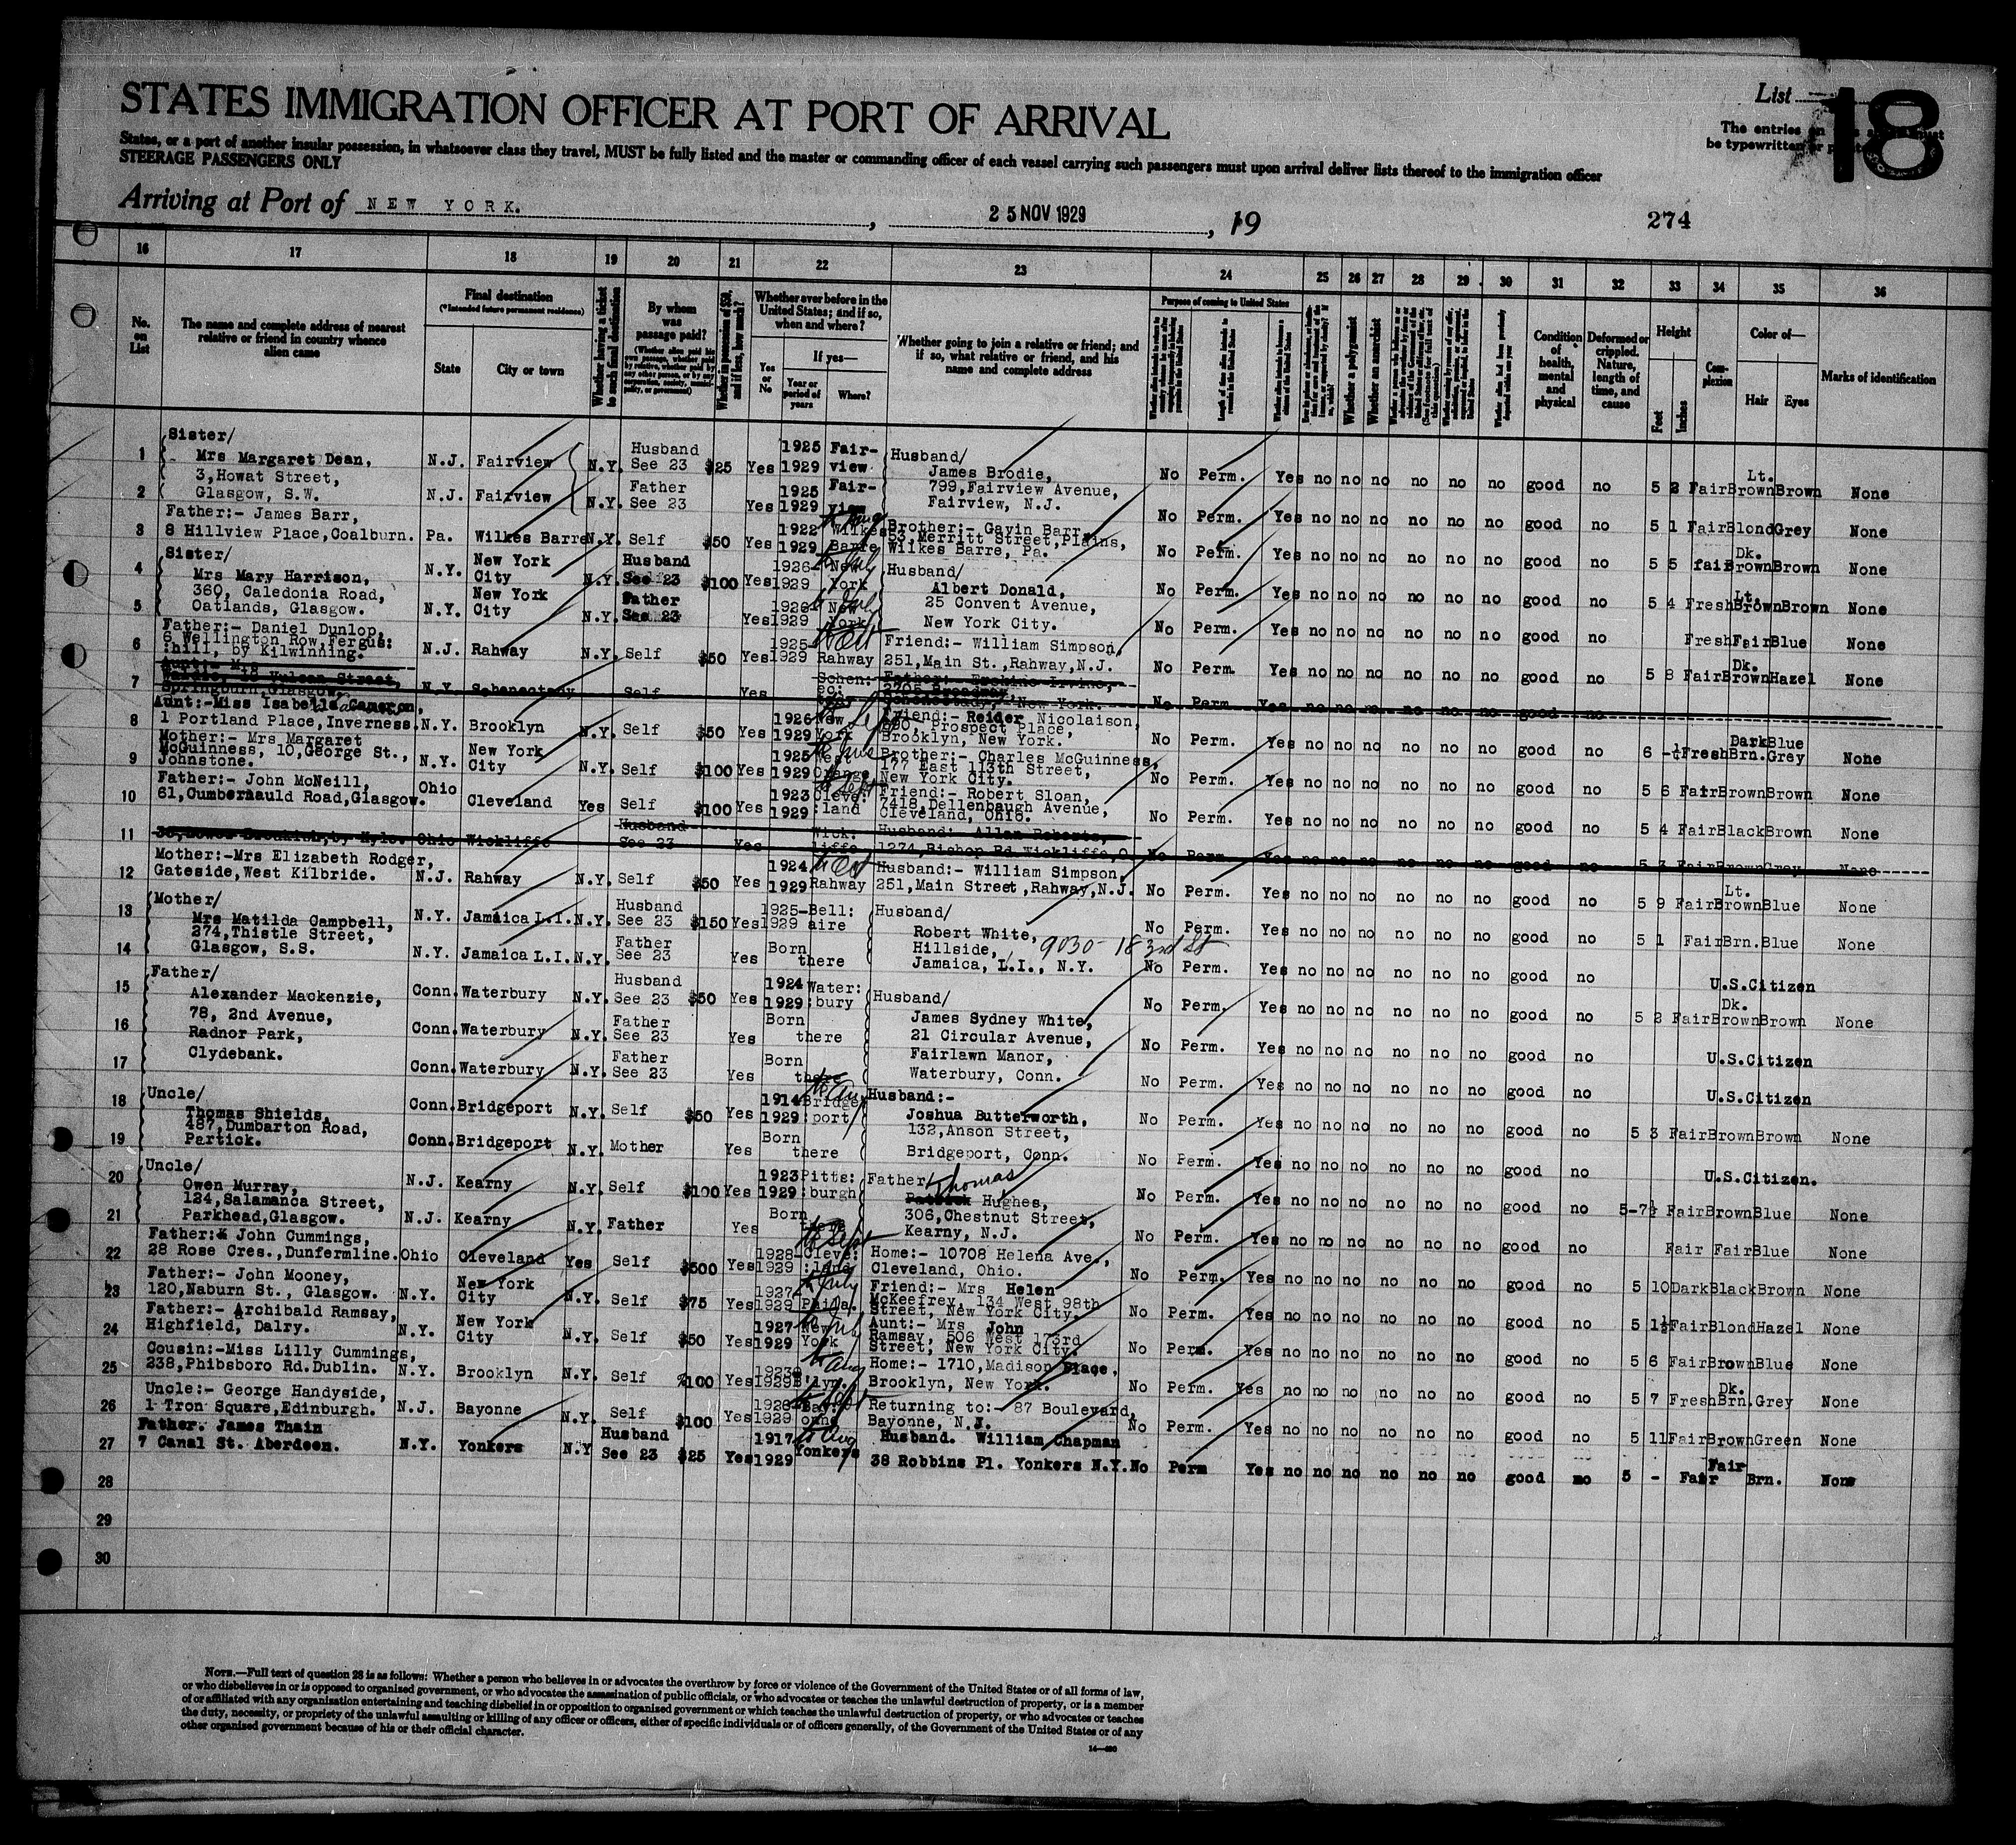 STATES IMMIGRATION OFFICER AT PORT OF ARRIVAL
List 18
States, or a port of another insular possession, in whatsoever class they travel, MUST be fully listed and the master or commanding officer of each vessel carrying such passengers must upon arrival deliver lists thereof to the immigration officer
STEERAGE PASSENGERS ONLY
The entries on must
be typewritten or
Arriving at Port of NEW YORK. , 25 NOV 1929 , 19 274
16 17 18 19 20 21 22 23 24 25 26 27 28 29 30 31 32 33 34 35 36
No. on List
The name and complete address of nearest relative or friend in country whence alien came
Final destination
(*Intended future permanent residence)
State
City or town
Whether having a ticket to such final destination
By whom was passage paid?
(Whether alien paid his own passage, whether paid by relative, whether paid by any other person, or by any corporation, society, municipality, or government)
Whether in possession of $50, and if less, how much?
Whether ever before in the United States; and if so, when and where?
Yes or No
If yes—
Year or period of years
Where?
Whether going to join a relative or friend; and if so, what relative or friend, and his name and complete address
Purpose of coming to United States
Whether a polygamist
Whether an anarchist
Condition of health, mental and physical
Deformed or crippled. Nature, length of time, and cause
Height
Feet
Inches
Complexion
Color of—
Hair
Eyes
Marks of identification
1 Sister/ Mrs Margaret Dean, 3,Howat Street, Glasgow, S.W. N.J. Fairview N.Y. Husband See 23 $25 Yes 1925 1929 Fair-view Husband/ James Brodie, 799,Fairview Avenue, Fairview, N.J. No Perm. Yes no no no no no no good no 5 2 Fair Lt. Brown Brown None
2 N.J. Fairview N.Y. Father See 23 Yes 1925 1929 Fair-view No Perm. Yes no no no no no no good no 5 1 Fair Blond Grey None
3 Father:- James Barr, 8 Hillview Place,Coalburn. Pa. Wilkes Barre N.Y. Self $50 Yes 1922 1929 Wilkes Barre Brother:- Gavin Barr, 53,Merritt Street,Plains, Wilkes Barre, Pa. No Perm. Yes no no no no no no good no 5 5 fair Dk. Brown Brown None
4 Sister/ Mrs Mary Harrison, 360, Caledonia Road, Oatlands, Glasgow. N.Y. New York City N.Y. Husband See 23 $100 Yes 1926- 1929 New York Husband/ Albert Donald, 25 Convent Avenue, New York City. No Perm. Yes no no no no no no good no 5 4 Fresh Lt. Brown Brown None
5 N.Y. New York City N.Y. Father See 23 Yes 1926- 1929 New York No Perm. Yes no no no no no no good no Fresh Fair Blue None
6 Father:- Daniel Dunlop, 6 Wellington Row,Fergus: :hill, by Kilwinning. N.J. Rahway N.Y. Self $50 Yes 1925- 1929 Rahway Friend:- William Simpson, 251,Main St.,Rahway,N.J. No Perm. Yes no no no no no no good no 5 8 Fair Dk. Brown Hazel None
7 Aunt:- Mrs 18 Vulcan Street, Springburn,Glasgow. N.Y. Schenectady Self Yes Schen: Father:- Erskine Irvine, 2705 Broadway, Schenectady, New York. No Perm Yes no no no no no no good no
8 Aunt:-Miss Isabella Cameron, 1 Portland Place,Inverness. N.Y. Brooklyn N.Y. Self $50 Yes 1926 1929 New York Friend:- Reider Nicolaison, Prospect Place, Brooklyn, New York. No Perm. Yes no no no no no no good no 6 -¼ Fresh Dark Brn. Blue Grey None
9 Mother:- Mrs Margaret McGuinness, 10,George St., Johnstone. N.Y. New York City N.Y. Self $100 Yes 1925 1929 West Orange Brother:- Charles McGuinness, 177 East 113th Street, New York City. No Perm. Yes no no no no no no good no 5 6 Fair Brown Brown None
10 Father:- John McNeill, 61,Cumbernauld Road,Glasgow. Ohio Cleveland Yes Self $100 Yes 1923 1929 Cleve: :land Friend:- Robert Sloan, 7418,Dellenbaugh Avenue, Cleveland, Ohio. No Perm. Yes no no no no no no good no 5 4 Fair Black Brown None
11 by Kyle. Ohio Wickliffe Husband See 23 Yes Wick: liffe Husband: Allan Roberts, 1274,Bishop Rd.Wickliffe,O. No Perm Yes no no no no no no good no 5 3 Fair Brown Grey None
12 Mother:-Mrs Elizabeth Rodger, Gateside,West Kilbride. N.J. Rahway N.Y. Self $50 Yes 1924 1929 Rahway Husband:- William Simpson, 251,Main Street,Rahway,N.J. No Perm. Yes no no no no no no good no 5 9 Fair Lt. Brown Blue None
13 Mother/ Mrs Matilda Campbell, 274,Thistle Street, Glasgow, S.S. N.Y. Jamaica L.I. N.Y. Husband See 23 $150 Yes 1925- 1929 Bell: aire Husband/ Robert White, Hillside, 9030 - 183rd St Jamaica, L.I., N.Y. No Perm. Yes no no no no no no good no 5 1 Fair Brn. Blue None
14 N.Y. Jamaica L.I. N.Y. Father See 23 Yes Born there No Perm. Yes no no no no no no good no U.S.Citizen
15 Father/ Alexander Mackenzie, 78, 2nd Avenue, Radnor Park, Clydebank. Conn. Waterbury N.Y. Husband See 23 $50 Yes 1924 1929 Water: :bury Husband/ James Sydney White, 21 Circular Avenue, Fairlawn Manor, Waterbury, Conn. No Perm. Yes no no no no no no good no 5 2 Fair Dk. Brown Brown None
16 Conn. Waterbury N.Y. Father See 23 Yes Born there No Perm. Yes no no no no no no good no U.S.Citizen
17 Conn. Waterbury N.Y. Father See 23 Yes Born there No Perm. Yes no no no no no no good no U.S.Citizen
18 Uncle/ Thomas Shields, 487,Dumbarton Road, Partick. Conn. Bridgeport N.Y. Self $50 Yes 1914 1929 Bridge: :port Husband:- Joshua Butterworth, 132,Anson Street, Bridgeport, Conn. No Perm. Yes no no no no no no good no 5 3 Fair Brown Brown None
19 Conn. Bridgeport N.Y. Mother Yes Born there No Perm. Yes no no no no no no good no U.S.Citizen.
20 Uncle/ Owen Murray, 124,Salamanca Street, Parkhead,Glasgow. N.J. Kearny N.Y. Self $100 Yes 1923 1929 Pitts: :burgh Father/ Thomas Patrick Hughes, 306,Chestnut Street, Kearny, N.J. No Perm. Yes no no no no no no good no 5-7½ Fair Brown Blue None
21 N.J. Kearny N.Y. Father Yes Born there No Perm. Yes no no no no no no good no Fair Fair Blue None
22 Father:- John Cummings, 28 Rose Cres.,Dunfermline. Ohio Cleveland Yes Self $500 Yes 1928- 1929 Cleve: :land Home:- 10708 Helena Ave., Cleveland, Ohio. No Perm. Yes no no no no no no good no 5 10 Dark Black Brown None
23 Father:- John Mooney, 120,Naburn St., Glasgow. N.Y. New York City N.Y. Self $75 Yes 1927- 1929 Phila. Friend:- Mrs Helen McKeefrey, 134 West 98th Street, New York City. No Perm. Yes no no no no no no good no 5 1½ Fair Blond Hazel None
24 Father:- Archibald Ramsay, Highfield, Dalry. N.Y. New York City N.Y. Self $50 Yes 1927 1929 New York Aunt:- Mrs John Ramsay, 506 West 173rd Street, New York City. No Perm. Yes no no no no no no good no 5 6 Fair Brown Blue None
25 Cousin:-Miss Lilly Cummings, 238,Phibsboro Rd.Dublin. N.Y. Brooklyn N.Y. Self $100 Yes 1923 1929 B'lyn. Home:- 1710,Madison Place, Brooklyn, New York. No Perm. Yes no no no no no no good no 5 7 Fresh Dk. Brn. Grey None
26 Uncle:- George Handyside, 1 Tron Square,Edinburgh. N.J. Bayonne N.Y. Self $100 Yes 1928 1929 Bay: onne Returning to:- 87 Boulevard, Bayonne, N.J. No Perm. Yes no no no no no no good no 5 11 Fair Brown Green None
27 Father. James Thain 7 Canal St. Aberdeen. N.Y. Yonkers N.Y Husband See 23 $25 Yes 1917 1929 Yonkers Husband. William Chapman 38 Robbins Pl. Yonkers N.Y. No Perm Yes no no no no no no good no 5 - Fair Fair Brn. None
28
29
30
NOTE.—Full text of question 28 is as follows: Whether a person who believes in or advocates the overthrow by force or violence of the Government of the United States or of all forms of law,
or who disbelieves in or is opposed to organised government, or who advocates the assassination of public officials, or who advocates or teaches the unlawful destruction of property, or is a member
of or affiliated with any organisation entertaining and teaching disbelief in or opposition to organised government or which teaches the unlawful destruction of property, or who advocates or teaches
the duty, necessity, or propriety of the unlawful assaulting or killing of any officer or officers, either of specific individuals or of officers generally, of the Government of the United States or of any
other organised government because of his or their official character.